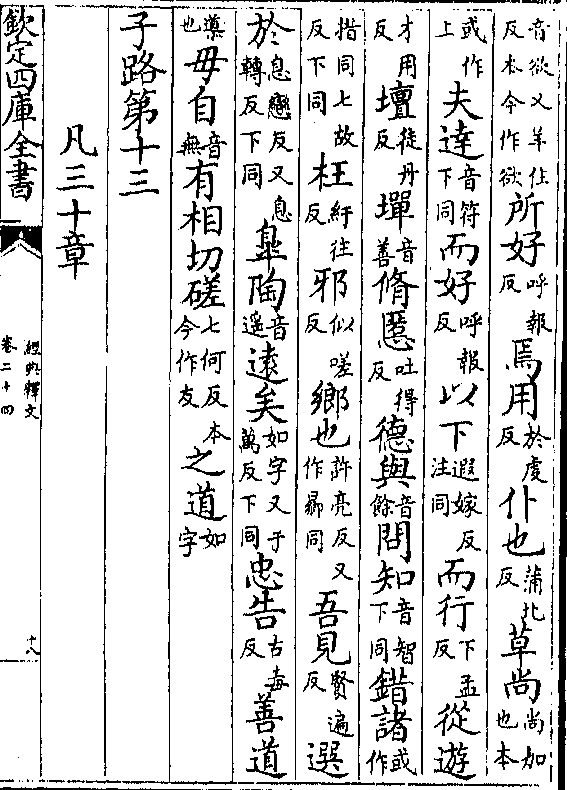 音欲又羊住反本今作欲所好呼報反焉用於虔反仆也蒲北反草尚尚加也本
或作上夫達音符下同而好呼報反以下遐嫁反注同而行下孟反從遊
才用反壇徒丹反墠音善脩慝吐得反德與音餘問知音智下同錯諸或作
措同七故反下同枉紆往反邪似嗟反鄉也許亮反又作曏同吾見賢遍反選
於息戀反又息轉反下同臯陶音遙遠矣如字又于萬反下同忠告古毒反善道
導也毋自音無有相切磋七何反本今作友之道如字
子路第十三
凡三十章
欽定四庫全書
經典釋文
卷二十四
十八